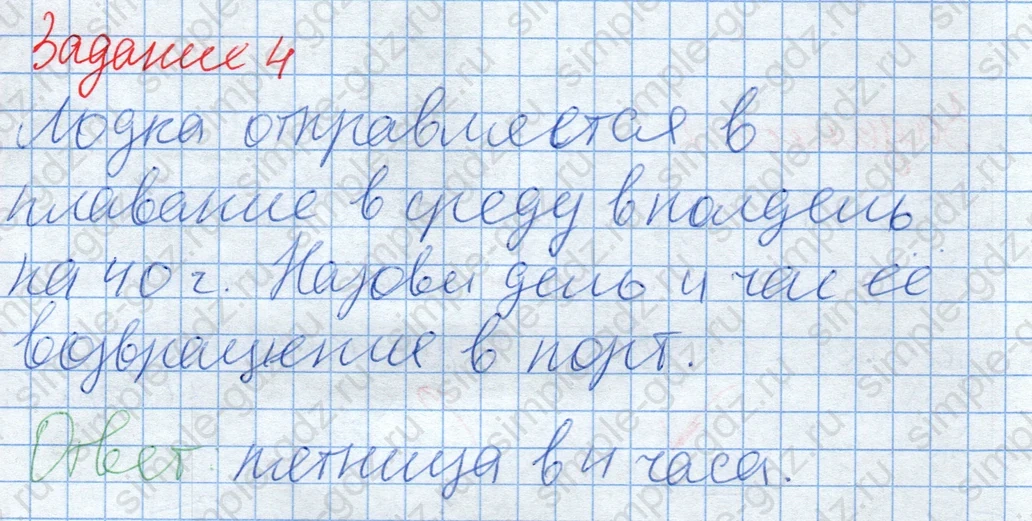 Задание 4
Лодка отправляется в
плавание в среду в полдень
на 40 ч. Назови день и час её
возвращение в порт.
Ответ: пятница в 4 часа.
simple-gdz.ru